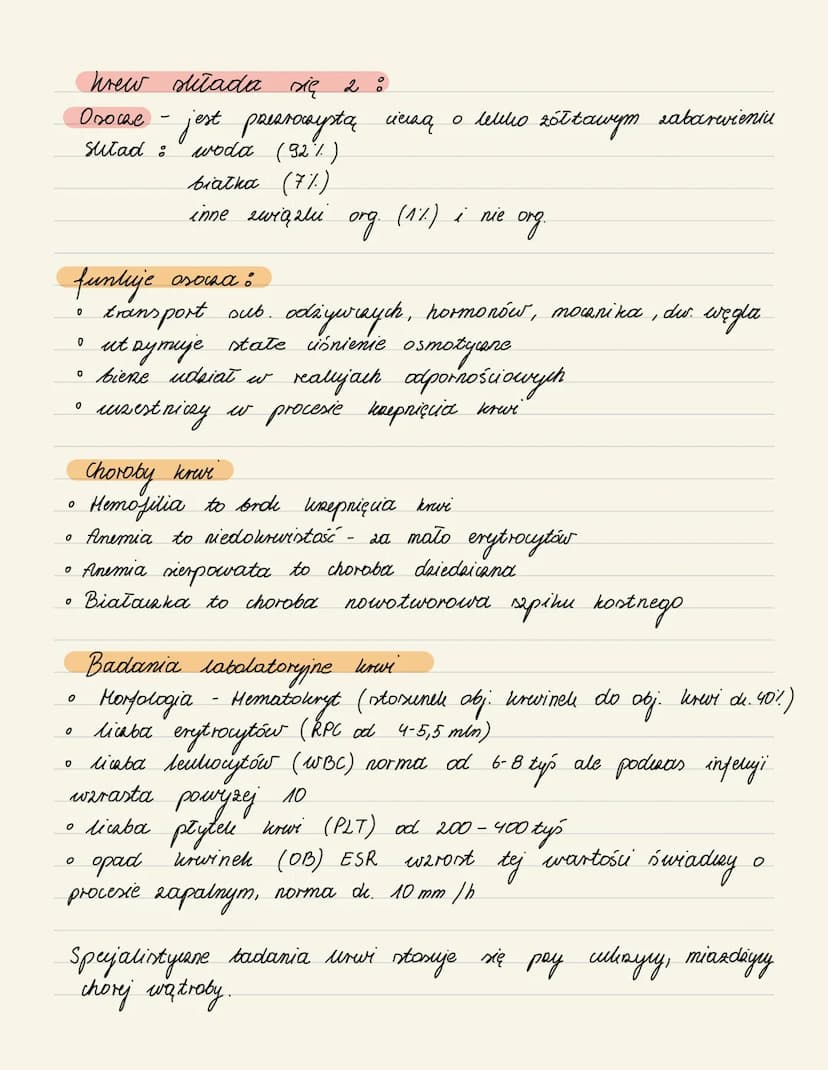 krew składa się z :
Osocze - jest przezroczystą cieczą o lekko żółtawym zabarwieniu
Skład : woda (92%)
białka (7%)
inne związki org. (1%) i nie org.
funkcje osocza :
• transport sub. odżywczych, hormonów, mocznika, dw. węgla
• utrzymuje stałe ciśnienie osmotyczne
• bierze udział w reakcjach odpornościowych
• uczestniczy w procesie krzepnięcia krwi
Choroby krwi
• Hemofilia to brak krzepnięcia krwi
• Anemia to niedokrwistość - za mało erytrocytów
• Anemia sierpowata to choroba dziedziczna
• Białaczka to choroba nowotworowa szpiku kostnego
Badania labolatoryjne krwi
• Morfologia - Hematokryt (stosunek obj. krwinek do obj. krwi ok. 40%)
• liczba erytrocytów (RPC od 4-5,5 mln)
• liczba leukocytów (WBC) norma od 6-8 tyś ale podczas infekcji
wzrasta powyżej 10
• liczba płytek krwi (PLT) od 200-400 tyś
• opad krwinek (OB) ESR wzrost tej wartości świadczy o
procesie zapalnym, norma ok. 10 mm /h
Specjalistyczne badania krwi stosuje się przy cukrzycy, miażdżycy
chorej wątroby.